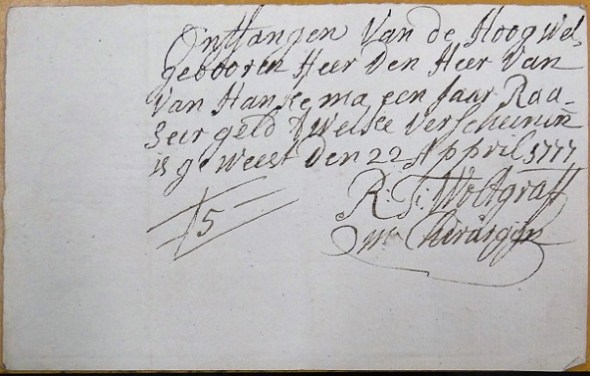 Ontfangen Van de Hoog wel,
gebooren Heer Den Heer Van
Van Hankema een Jaar Raa-
seer geld twelke Verscheinin
is geweest Den 22 Appril 1777
R: T: Woltgraft
5 mr Chirurgijn